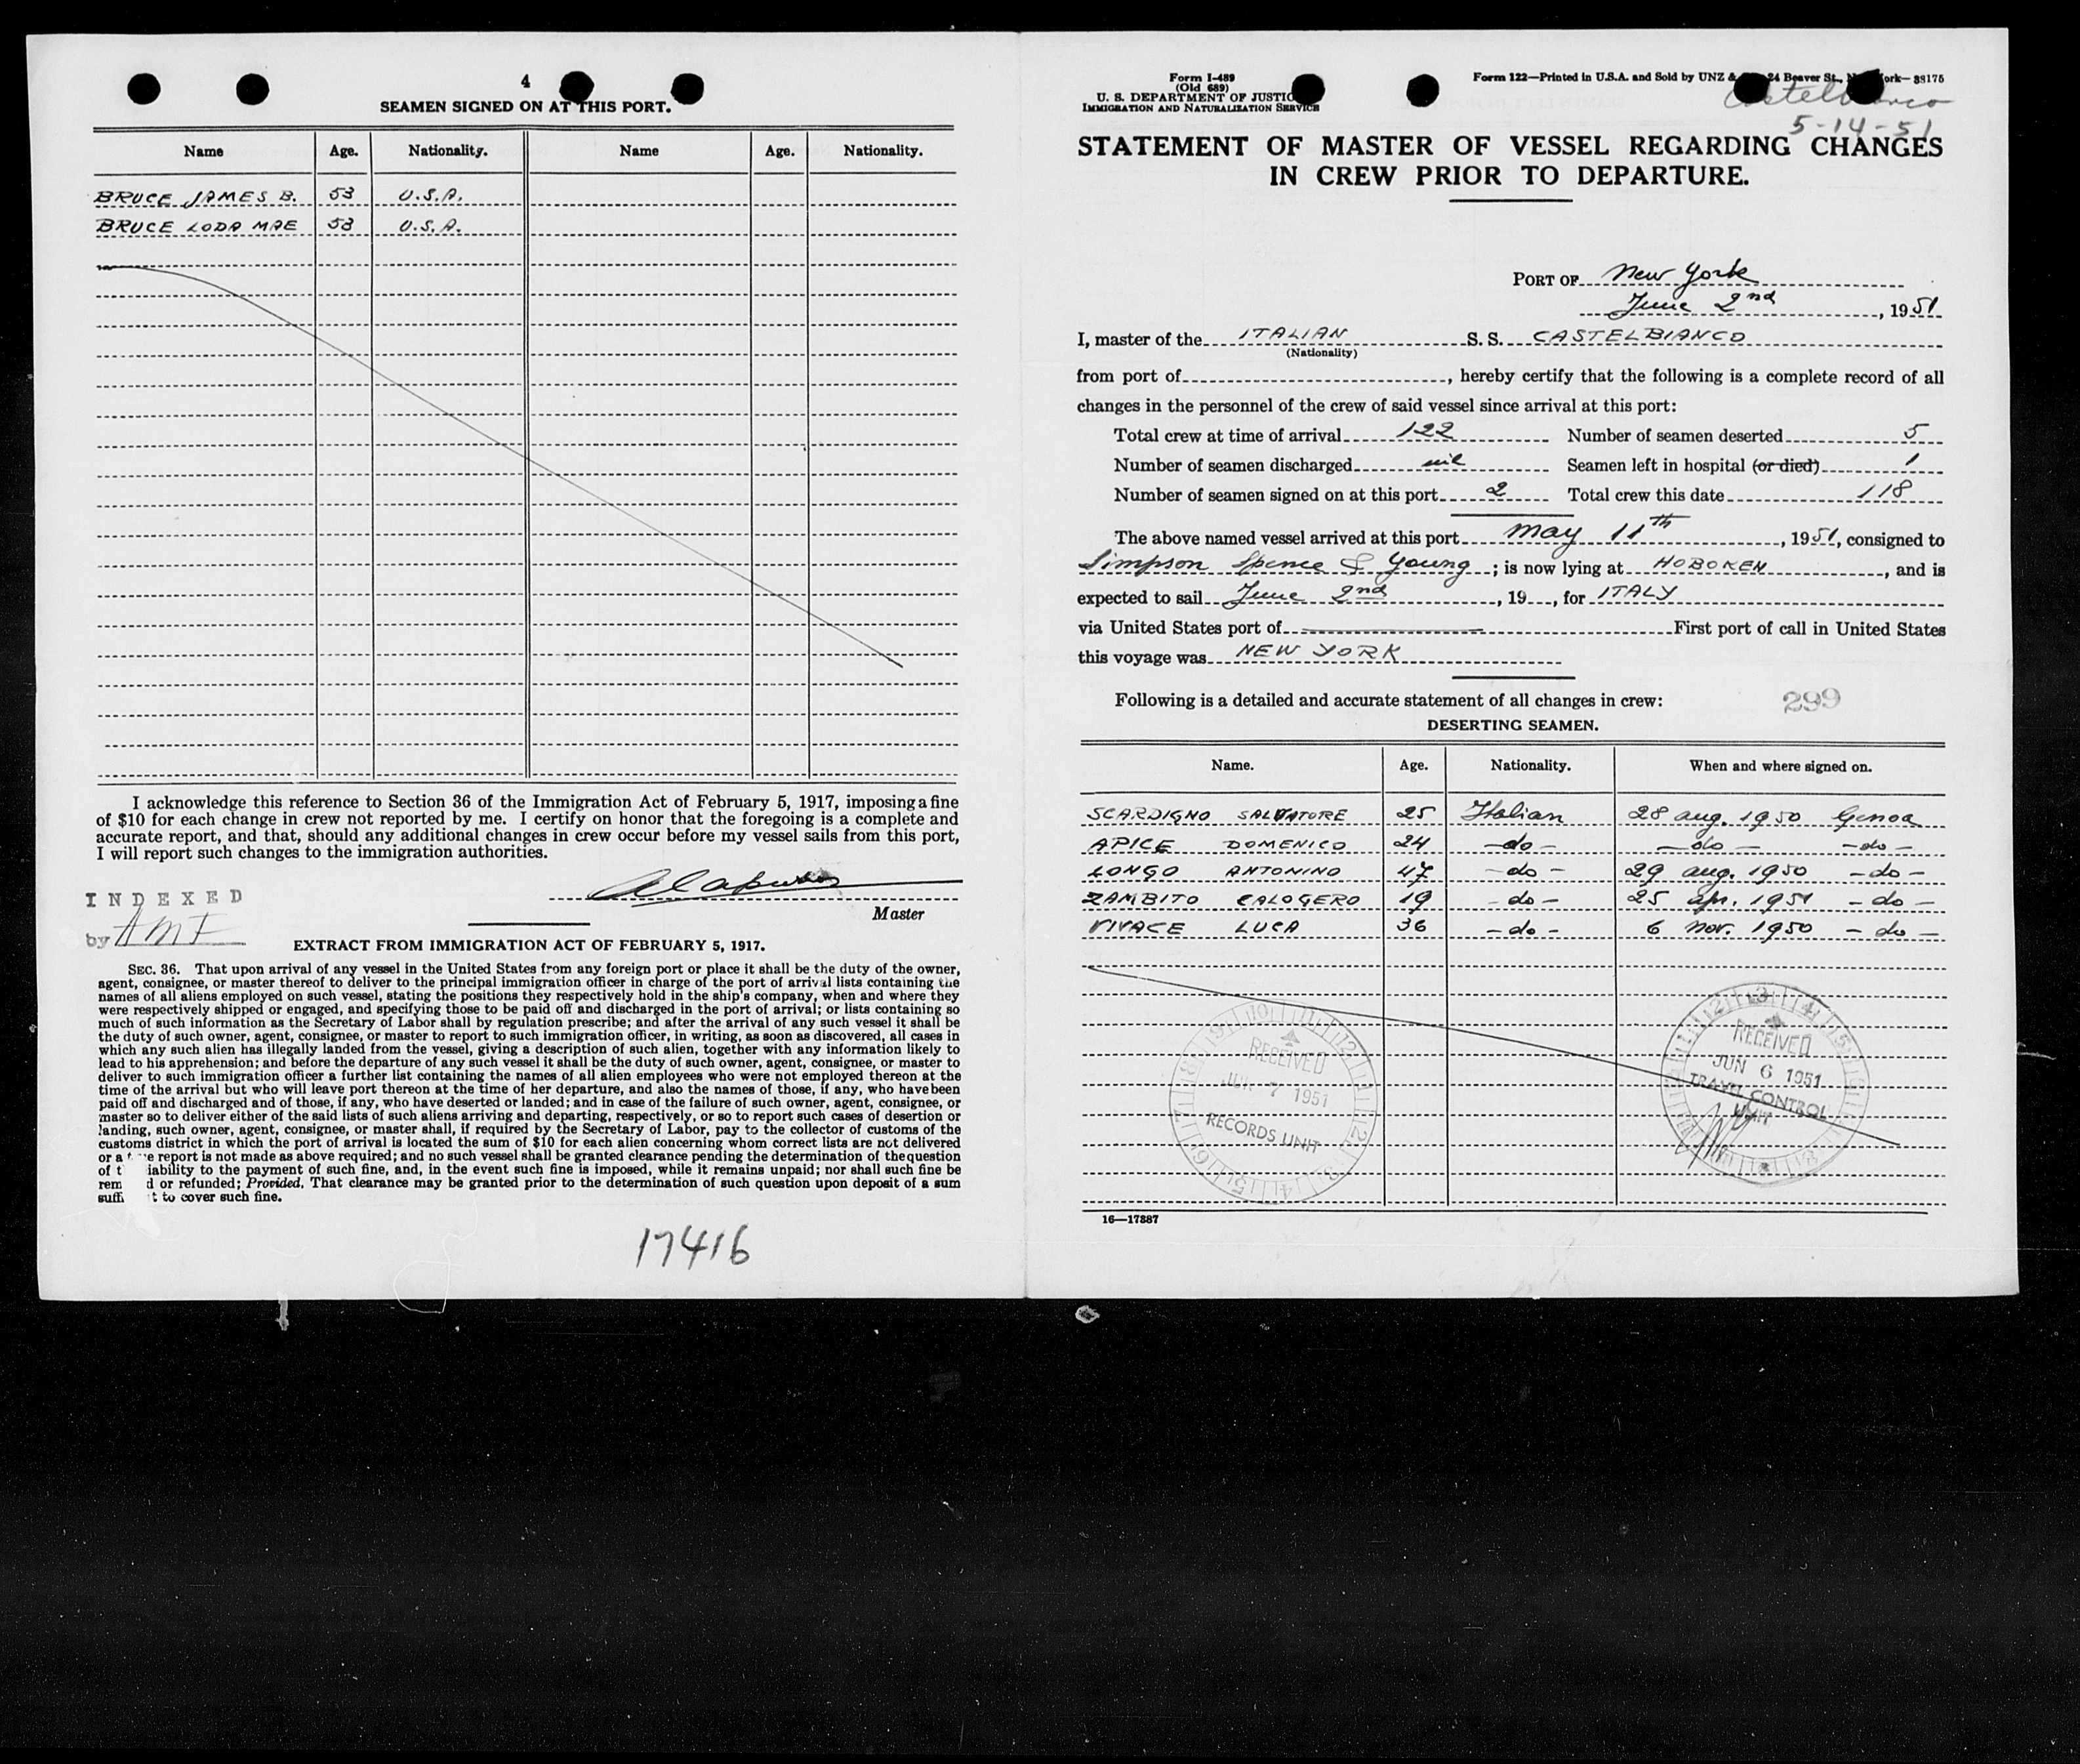 4
SEAMEN SIGNED ON AT THIS PORT.
Name Age. Nationality. Name Age. Nationality.
BRUCE JAMES B. 53 U.S.A.
BRUCE LODA MAE 53 U.S.A.
I acknowledge this reference to Section 36 of the Immigration Act of February 5, 1917, imposing a fine
of $10 for each change in crew not reported by me. I certify on honor that the foregoing is a complete and
accurate report, and that, should any additional changes in crew occur before my vessel sails from this port,
I will report such changes to the immigration authorities.
Master
INDEXED
by AMF
EXTRACT FROM IMMIGRATION ACT OF FEBRUARY 5, 1917.
SEC. 36. That upon arrival of any vessel in the United States from any foreign port or place it shall be the duty of the owner,
agent, consignee, or master thereof to deliver to the principal immigration officer in charge of the port of arrival lists containing the
names of all aliens employed on such vessel, stating the positions they respectively hold in the ship's company, when and where they
were respectively shipped or engaged, and specifying those to be paid off and discharged in the port of arrival; or lists containing so
much of such information as the Secretary of Labor shall by regulation prescribe; and after the arrival of any such vessel it shall be
the duty of such owner, agent, consignee, or master to report to such immigration officer, in writing, as soon as discovered, all cases in
which any such alien has illegally landed from the vessel, giving a description of such alien, together with any information likely to
lead to his apprehension; and before the departure of any such vessel it shall be the duty of such owner, agent, consignee, or master to
deliver to such immigration officer a further list containing the names of all alien employees who were not employed thereon at the
time of the arrival but who will leave port thereon at the time of her departure, and also the names of those, if any, who have been
paid off and discharged and of those, if any, who have deserted or landed; and in case of the failure of such owner, agent, consignee, or
master so to deliver either of the said lists of such aliens arriving and departing, respectively, or so to report such cases of desertion or
landing, such owner, agent, consignee, or master shall, if required by the Secretary of Labor, pay to the collector of customs of the
customs district in which the port of arrival is located the sum of $10 for each alien concerning whom correct lists are not delivered
or a report is not made as above required; and no such vessel shall be granted clearance pending the determination of the question
of iability to the payment of such fine, and, in the event such fine is imposed, while it remains unpaid; nor shall such fine be
rem d or refunded; Provided, That clearance may be granted prior to the determination of such question upon deposit of a sum
suffi t to cover such fine.
17416
Form I-489
(Old 689)
U. S. DEPARTMENT OF JUSTIC
IMMIGRATION AND NATURALIZATION SERVICE
Form 122—Printed in U.S.A. and Sold by UNZ & 24 Beaver St., N ork—38175
Castelbianco
5-14-51
STATEMENT OF MASTER OF VESSEL REGARDING CHANGES
IN CREW PRIOR TO DEPARTURE.
PORT OF New York
June 2nd, 1951
I, master of the ITALIAN S. S. CASTELBIANCO
(Nationality)
from port of , hereby certify that the following is a complete record of all
changes in the personnel of the crew of said vessel since arrival at this port:
Total crew at time of arrival 122 Number of seamen deserted 5
Number of seamen discharged nil Seamen left in hospital (or died) 1
Number of seamen signed on at this port 2 Total crew this date 118
The above named vessel arrived at this port May 11th, 1951, consigned to
Simpson Spence & Young; is now lying at HOBOKEN, and is
expected to sail June 2nd, 19 , for ITALY
via United States port of First port of call in United States
this voyage was NEW YORK
Following is a detailed and accurate statement of all changes in crew:
299
DESERTING SEAMEN.
Name. Age. Nationality. When and where signed on.
SCARDIGNO SALVATORE 25 Italian 28 aug. 1950 Genoa
APICE DOMENICO 24 -do- -do- -do-
LONGO ANTONINO 47 -do- 29 aug. 1950 -do-
ZAMBITO CALOGERO 19 -do- 25 apr. 1951 -do-
VIVACE LUCA 36 -do- 6 nov. 1950 -do-
RECEIVED
JUN 7 1951
RECORDS UNIT
RECEIVED
JUN 6 1951
TRAVEL CONTROL
UNIT
16—17887